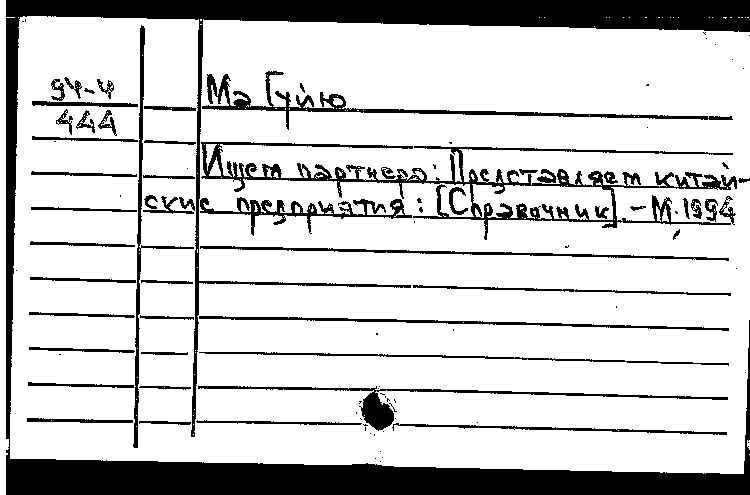 94-4
444
Ма Гуйю
Ищем партнера: Представляем китай-
ские предприятия: [Справочник]. - М., 1994